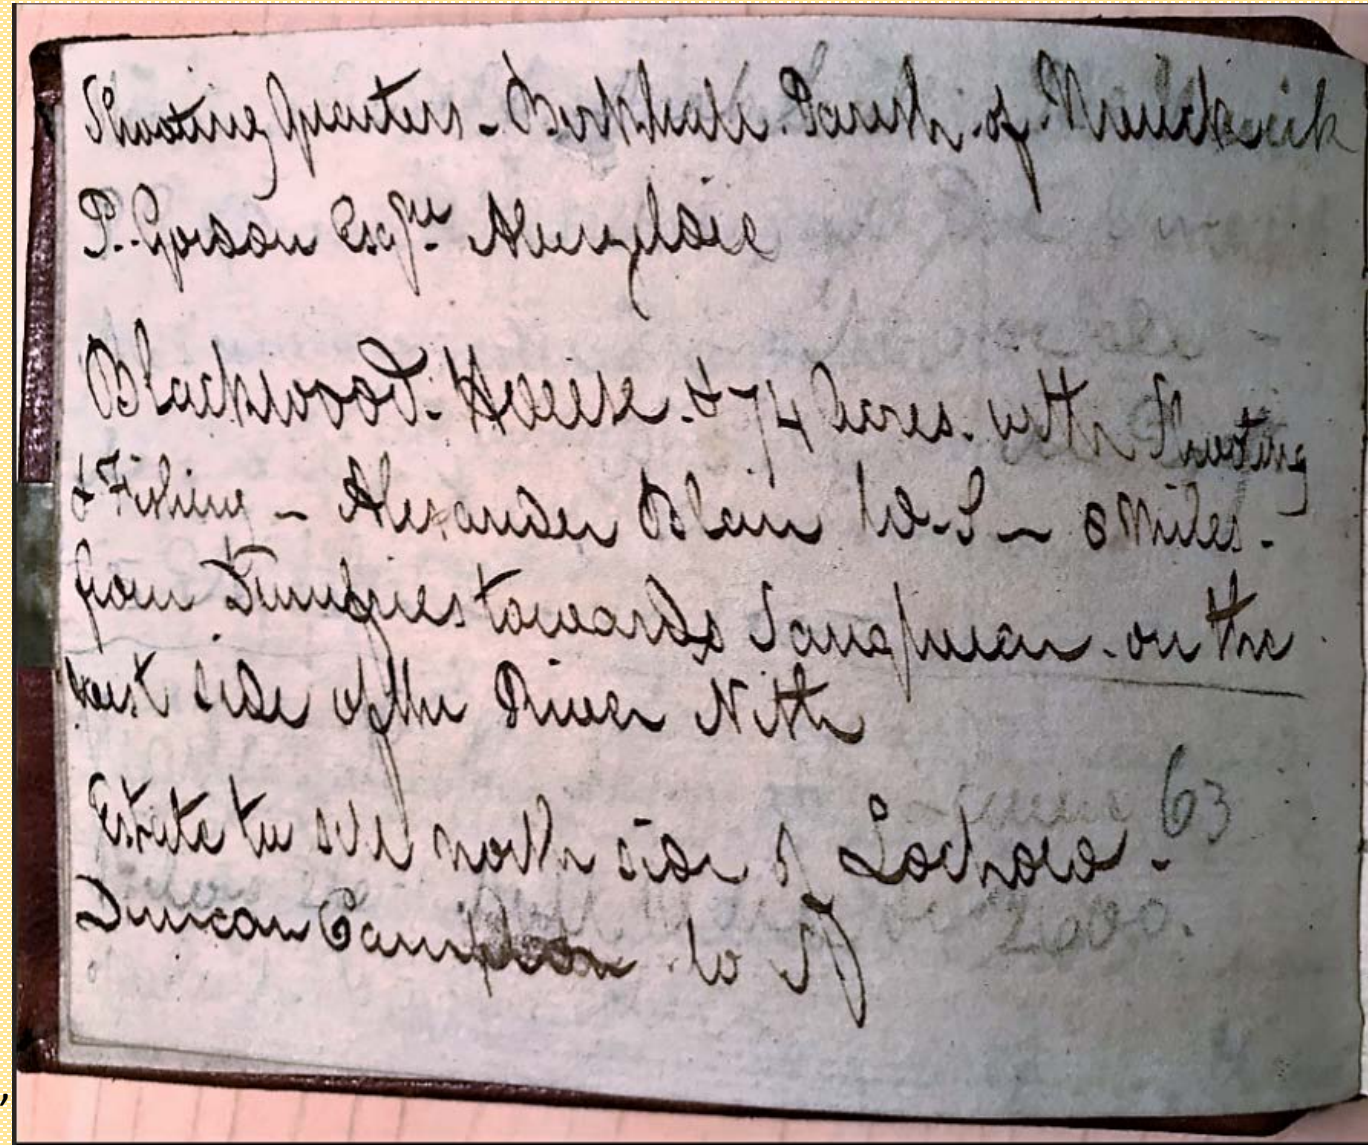 Shooting Quarters - Birkhall. Parish of Muick
P. Gordon Esqre Abergeldie
Blackwood. House. & 74 Acres. with Shooting
& Fishing - Alexander Blair W.S - 8 Miles -
from Dumfries towards Sanquhar. on the
west side of the River Nith
Estate to sell north side of -
Duncan W S
63
2000.